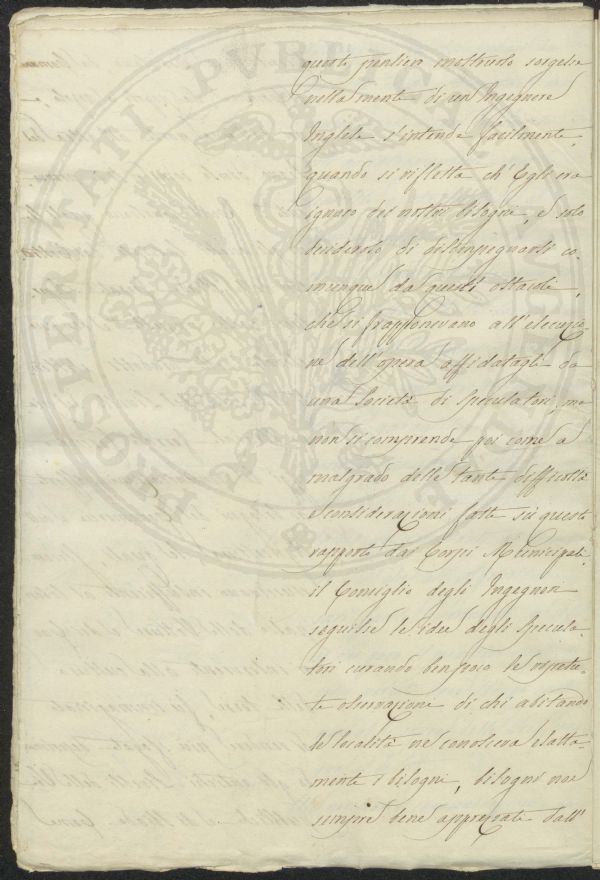 questo pensiero mostruoso sorgesse
nella mente di un Ingegnere
Inglese s'intende facilmente,
quando si rifletta ch'Egli era
ignaro dei nostri bisogni, e solo
desideroso di disimpegnarsi co-
munque da questi ostacoli,
che si frapponevano all'esecuzio-
ne dell'opera affidatagli da
una Società di Speculatori, ma
non si comprende poi come a
malgrado delle tante difficoltà
e considerazioni fatte su questo
rapporto dai Corpi Municipali
il Consiglio degli Ingegneri
seguisse le idee degli Specula-
tori curando ben poco le ripetu-
te osservazione di chi abitando
le località ne conosceva esatta-
mente i bisogni, bisogni non
sempre bene apprezzate dall'
PROSPERITATI PVBLICAE